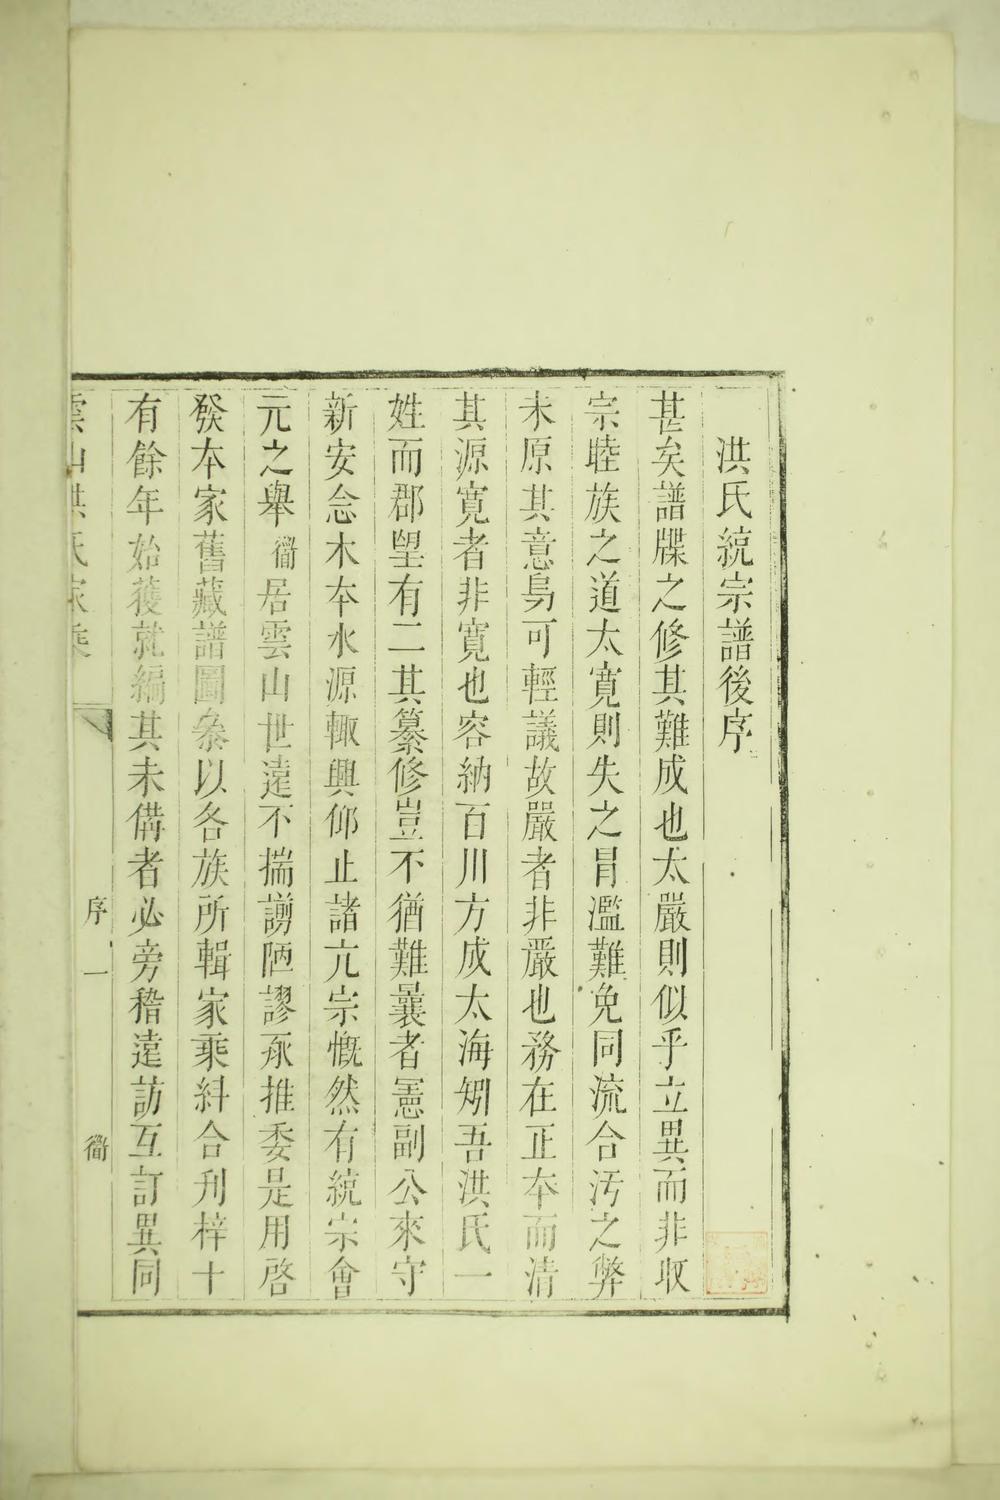 洪氏統宗譜後序
甚矣譜牒之修其難成也太嚴則似乎立異而非収
宗睦族之道太寬則失之冐濫難免同流合汚之弊
未原其意烏可輕議故嚴者非嚴也務在正本而清
其源寬者非寬也容納百川方成太海矧吾洪氏一
姓而郡望有二其纂修豈不猶難曩者憲副公來守
新安念木本水源輙興仰止諸亢宗慨然有統宗會
元之舉衟居雲山世遠不揣謭陋謬承推委是用啓
發本家舊藏譜圖叅以各族所輯家乘糾合刋梓十
有餘年始獲就編其未備者必旁稽遠訪互訂異同
雲山洪氏家乘
序 一 衟